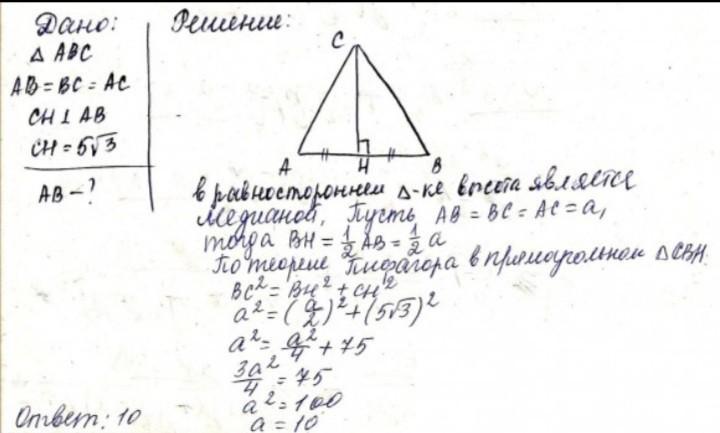 Дано:
△ ABC
AB = BC = AC
CH ⊥ AB
CH = 5√3
AB - ?
Решение:
C
A H B
в равностороннем △-ке высота является
медианой. Пусть AB = BC = AC = a,
тогда BH = 1/2 AB = 1/2 a
По теореме Пифагора в прямоугольном △CBH
BC² = BH² + CH²
a² = (a/2)² + (5√3)²
a² = a²/4 + 75
3a²/4 = 75
a² = 100
a = 10
Ответ: 10